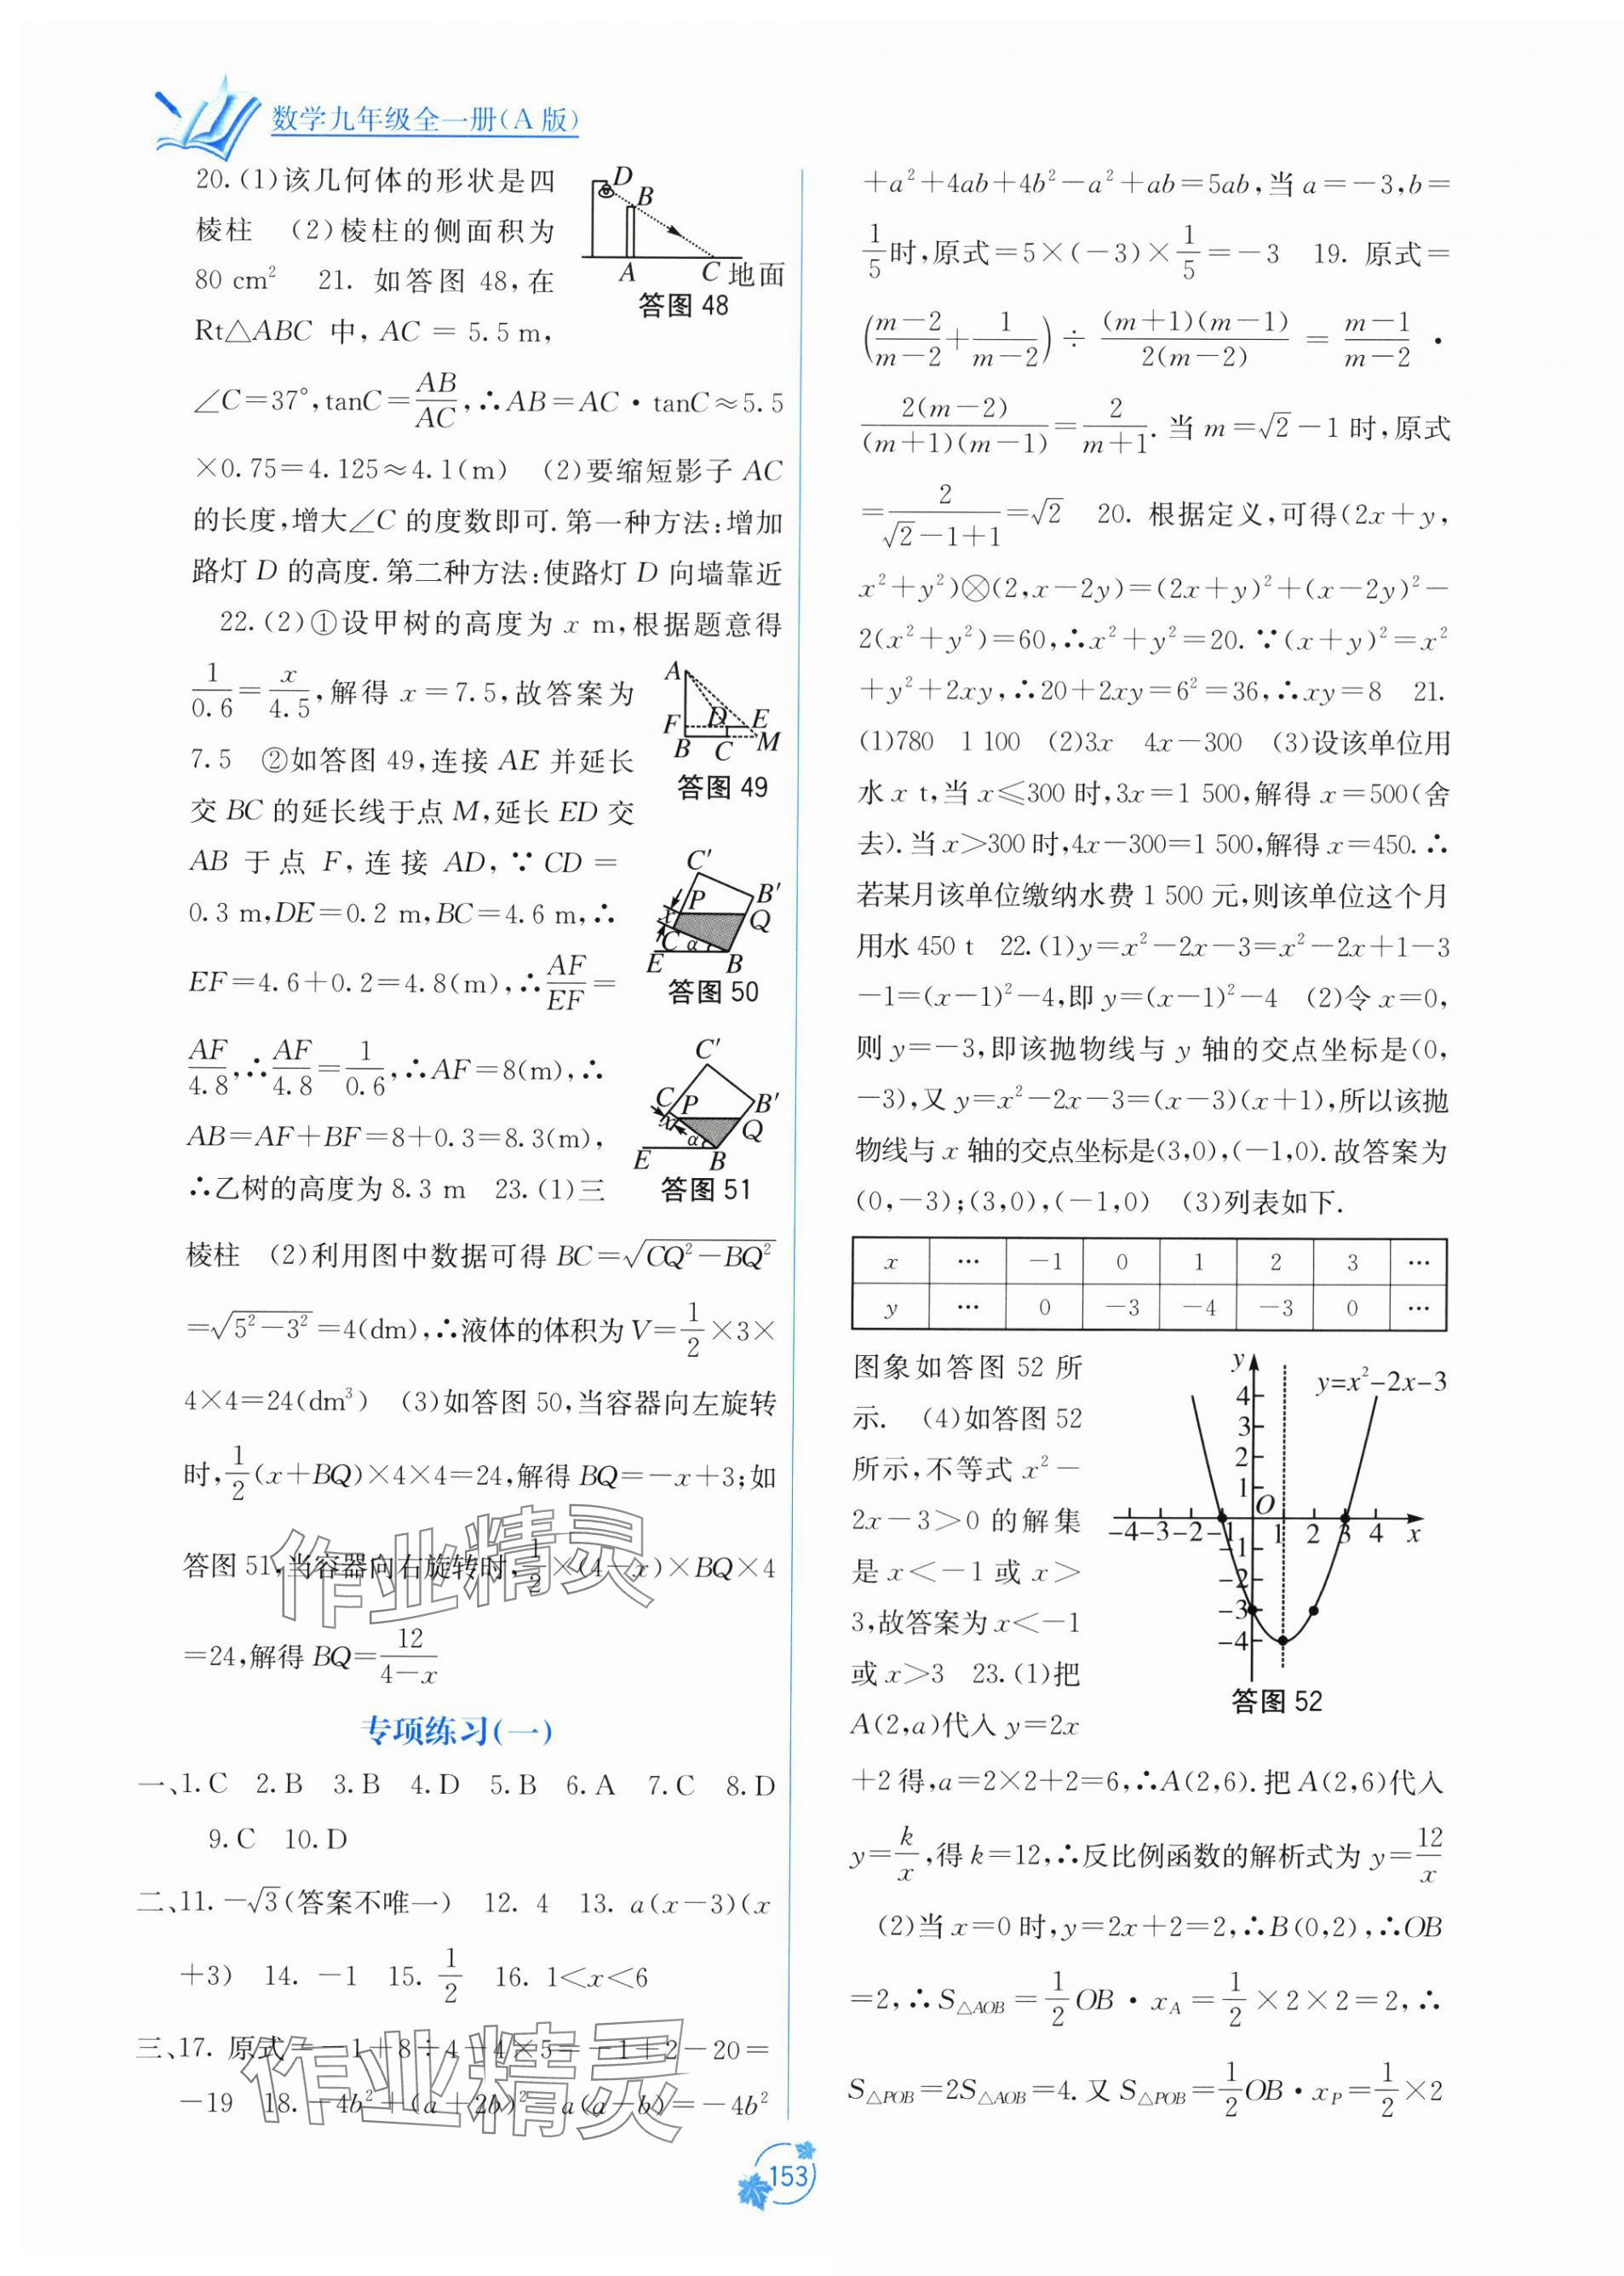 数学九年级全一册(A版)
20.(1)该几何体的形状是四
棱柱 (2)棱柱的侧面积为
80 cm² 21. 如答图 48,在
Rt△ABC 中, AC = 5.5 m,
∠C=37°,tanC=AB/AC,∴AB=AC·tanC≈5.5
×0.75=4.125≈4.1(m) (2)要缩短影子 AC
的长度,增大∠C 的度数即可.第一种方法:增加
路灯 D 的高度.第二种方法:使路灯 D 向墙靠近
22.(2)①设甲树的高度为 x m,根据题意得
1/0.6=x/4.5,解得 x=7.5,故答案为
7.5 ②如答图 49,连接 AE 并延长
交 BC 的延长线于点 M,延长 ED 交
AB 于点 F,连接 AD,∵CD=
0.3 m,DE=0.2 m,BC=4.6 m,∴
EF=4.6+0.2=4.8(m),∴AF/EF=
AF/4.8,∴AF/4.8=1/0.6,∴AF=8(m),∴
AB=AF+BF=8+0.3=8.3(m),
∴乙树的高度为 8.3 m 23.(1)三
棱柱 (2)利用图中数据可得 BC=√(CQ²-BQ²)
=√(5²-3²)=4(dm),∴液体的体积为 V=1/2×3×
4×4=24(dm³) (3)如答图 50,当容器向左旋转
时,1/2(x+BQ)×4×4=24,解得 BQ=-x+3;如
答图 51,当容器向右旋转时,1/2×(4-x)×BQ×4
=24,解得 BQ=12/(4-x)
D
B
A
C
地面
答图 48
A
F
D
E
B
C
M
答图 49
C′
P
B′
x
Q
C
α
E
B
答图 50
C′
C
P
B′
x
Q
α
E
B
答图 51
专项练习(一)
一、1.C 2.B 3.B 4.D 5.B 6.A 7.C 8.D
9.C 10.D
二、11.-√3(答案不唯一) 12. 4 13. a(x-3)(x
+3) 14. -1 15. 1/2 16. 1<x<6
三、17. 原式=-1+8÷4-4×5=-1+2-20=
-19 18.-4b²+(a+2b)²-a(a-b)=-4b²
+a²+4ab+4b²-a²+ab=5ab,当 a=-3,b=
1/5时,原式=5×(-3)×1/5=-3 19. 原式=
((m-2)/(m-2)+1/(m-2))÷(m+1)(m-1)/2(m-2)=(m-1)/(m-2)·
2(m-2)/(m+1)(m-1)=2/(m+1).当 m=√2-1 时,原式
=2/(√2-1+1)=√2 20. 根据定义,可得(2x+y,
x²+y²)⊗(2,x-2y)=(2x+y)²+(x-2y)²-
2(x²+y²)=60,∴x²+y²=20.∵(x+y)²=x²
+y²+2xy,∴20+2xy=6²=36,∴xy=8 21.
(1)780 1 100 (2)3x 4x-300 (3)设该单位用
水 x t,当 x⩽300 时,3x=1 500,解得 x=500(舍
去).当 x>300 时,4x-300=1 500,解得 x=450.∴
若某月该单位缴纳水费 1 500 元,则该单位这个月
用水 450 t 22.(1)y=x²-2x-3=x²-2x+1-3
-1=(x-1)²-4,即 y=(x-1)²-4 (2)令 x=0,
则 y=-3,即该抛物线与 y 轴的交点坐标是(0,
-3),又 y=x²-2x-3=(x-3)(x+1),所以该抛
物线与 x 轴的交点坐标是(3,0),(-1,0).故答案为
(0,-3);(3,0),(-1,0) (3)列表如下.
x … -1 0 1 2 3 …
y … 0 -3 -4 -3 0 …
图象如答图 52 所
示. (4)如答图 52
所示,不等式 x²-
2x-3>0 的解集
是 x<-1 或 x>
3,故答案为 x<-1
或 x>3 23.(1)把
A(2,a)代入 y=2x
y
y=x²-2x-3
4
3
2
1
O
-4 -3 -2 -1 1 2 3 4 x
-1
-2
-3
-4
答图 52
+2 得,a=2×2+2=6,∴A(2,6).把 A(2,6)代入
y=k/x,得 k=12,∴反比例函数的解析式为 y=12/x
(2)当 x=0 时,y=2x+2=2,∴B(0,2),∴OB
=2,∴S△AOB=1/2OB·xA=1/2×2×2=2,∴
S△POB=2S△AOB=4.又 S△POB=1/2OB·xP=1/2×2
作业精灵
作业精灵
153